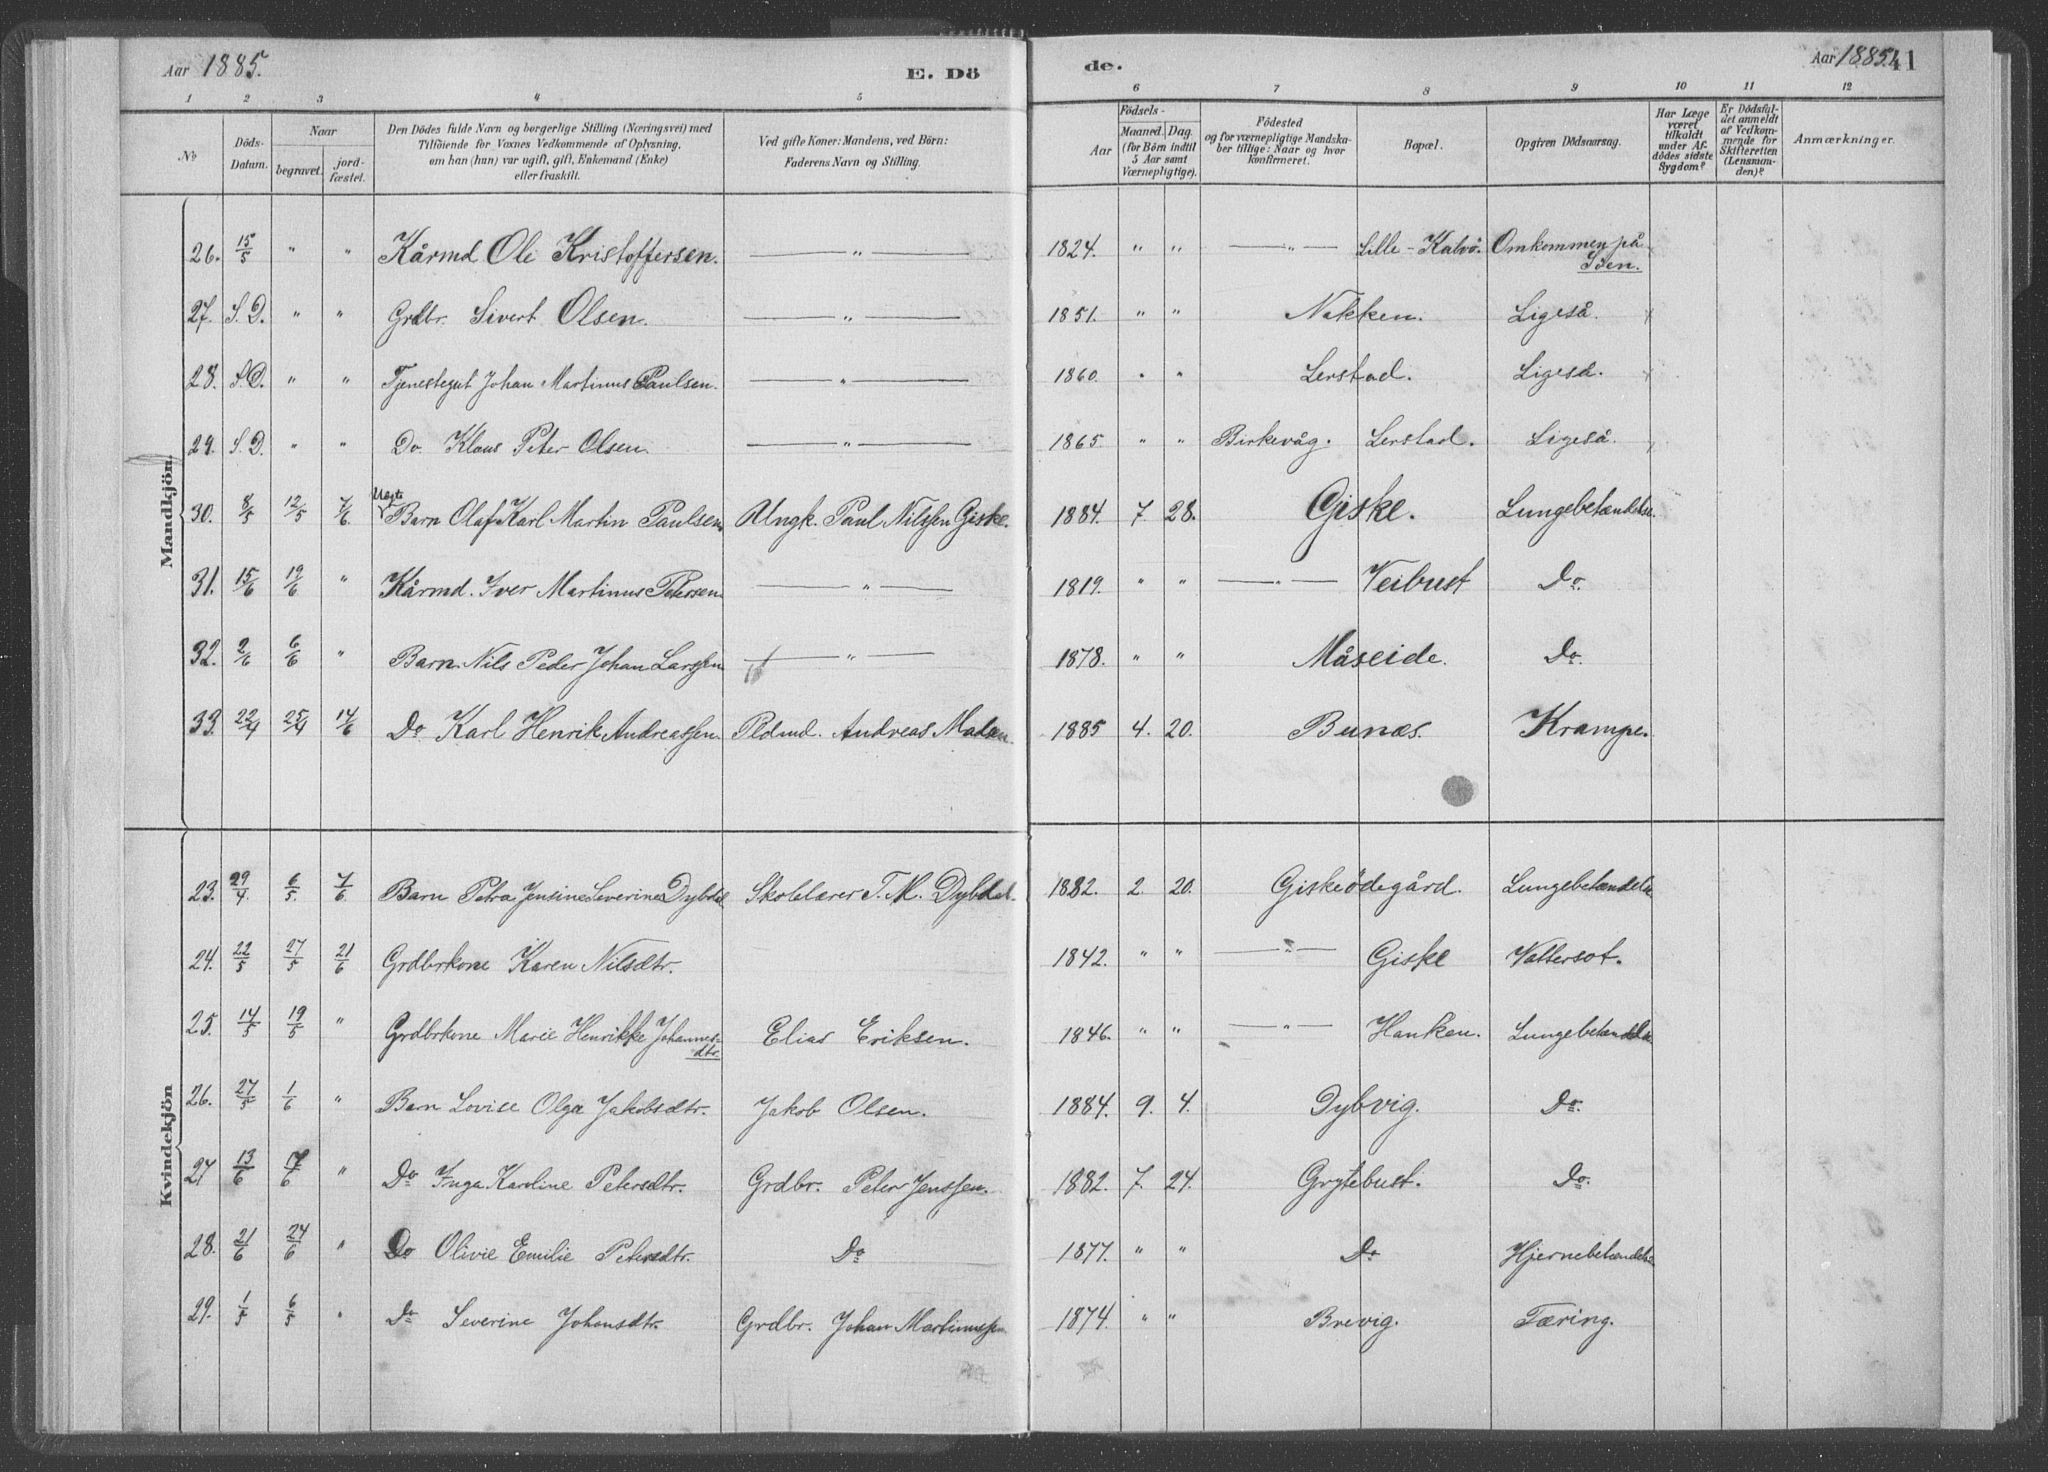 Aar 1885. E. Dö de. Aar 1885. 41
1 2 3 4 5 6 7 8 9 10 11 12
No Döds-Datum. Naar begravet. jordfæstet. Den Dödes fulde Navn og borgerlige Stilling (Næringsvei) med Tilföiende for Voxnes Vedkommende af Oplysning, om han (hun) var ugift, gift, Enkemand (Enke) eller fraskilt. Ved gifte Koner: Mandens, ved Börn: Faderens Navn og Stilling. Födsels- Aar Maaned. Dag. (for Börn indtil 5 Aar samt Værnepligtige). Födested og for værnepligtige Mandskaber tillige: Naar og hvor konfirmeret. Bopæl. Opgiven Dödsaarsag. Har Læge været tilkaldt under Afdödes sidste Sygdom? Er Dödsfuldet anmeldt af Vedkommende for Skifteretten (Lensmanden)? Anmærkninger.
Mandkjön.
26. 15/5 " " Kårmd Ole Kristoffersen. — " — 1824. " " — " — Lille-Kalvö. Omkommen på Söen.
27. S.D. " " Grdbr. Sivert Olsen. — " — 1851. " " Nakken. Ligeså.
28. S.D. " " Tjenestegut Johan Martinus Paulsen. — " — 1860. " " Lerstad. Ligeså.
29. S.D. " " Do Klaus Peter Olsen. — " — 1865 " " Birkevåg. Lerstad. Ligeså.
30. 8/5 12/5 7/6. Uegte Barn Olaf Karl Martin Paulsen Ungk. Paul Nilssen Giske. 1884. 7. 28. Giske. Lungebetændelse.
31. 15/6 19/6 " Kårmd. Iver Martinus Petersen — " — 1819. " " — " — Veibust Do.
32. 2/6 6/6 " Barn Nils Peder Johan Larssen — " — 1878. " " Måseide. Do.
33. 22/4 25/4 14/6 Do Karl Henrik Andreassen. Pldmd. Andreas Madsen. 1885 4. 20. Bunæs. Krampe.
Kvindekjön
23. 29/4. 6/5. 7/6. Barn Petra Jensine Severine Dybdal Skolelærer T. M. Dybdal. 1882. 2. 20. Giskeödegård. Lungebetændelse
24. 22/5 27/5 21/6 Grdbrkone Karen Nilsdtr. 1842. " " — " — Giske Vattersot.
25. 14/5 19/5 " Grdbrkone Marie Henrikke Johannes-dtr. Elias Eriksen. 1846. " " — " — Hanken. Lungebetændelse
26. 27/5 1/6 " Barn Lovise Olga Jakobsdtr. Jakob Olsen. 1884. 9. 4. Dybvig. Do.
27 13/6 17/6 " Do Inga Karoline Petersdtr. Grdbr. Peter Jenssen. 1882. 7. 24. Grytebust. Do.
28. 21/6 24/6 " Do Olivie Emilie Petersdtr. Do 1877. " " Do Hjernebetændelse
29. 1/5 6/5 " Do Severine Johansdtr. Grdbr. Johan Martinussen 1874. " " Brevig. Tæring.